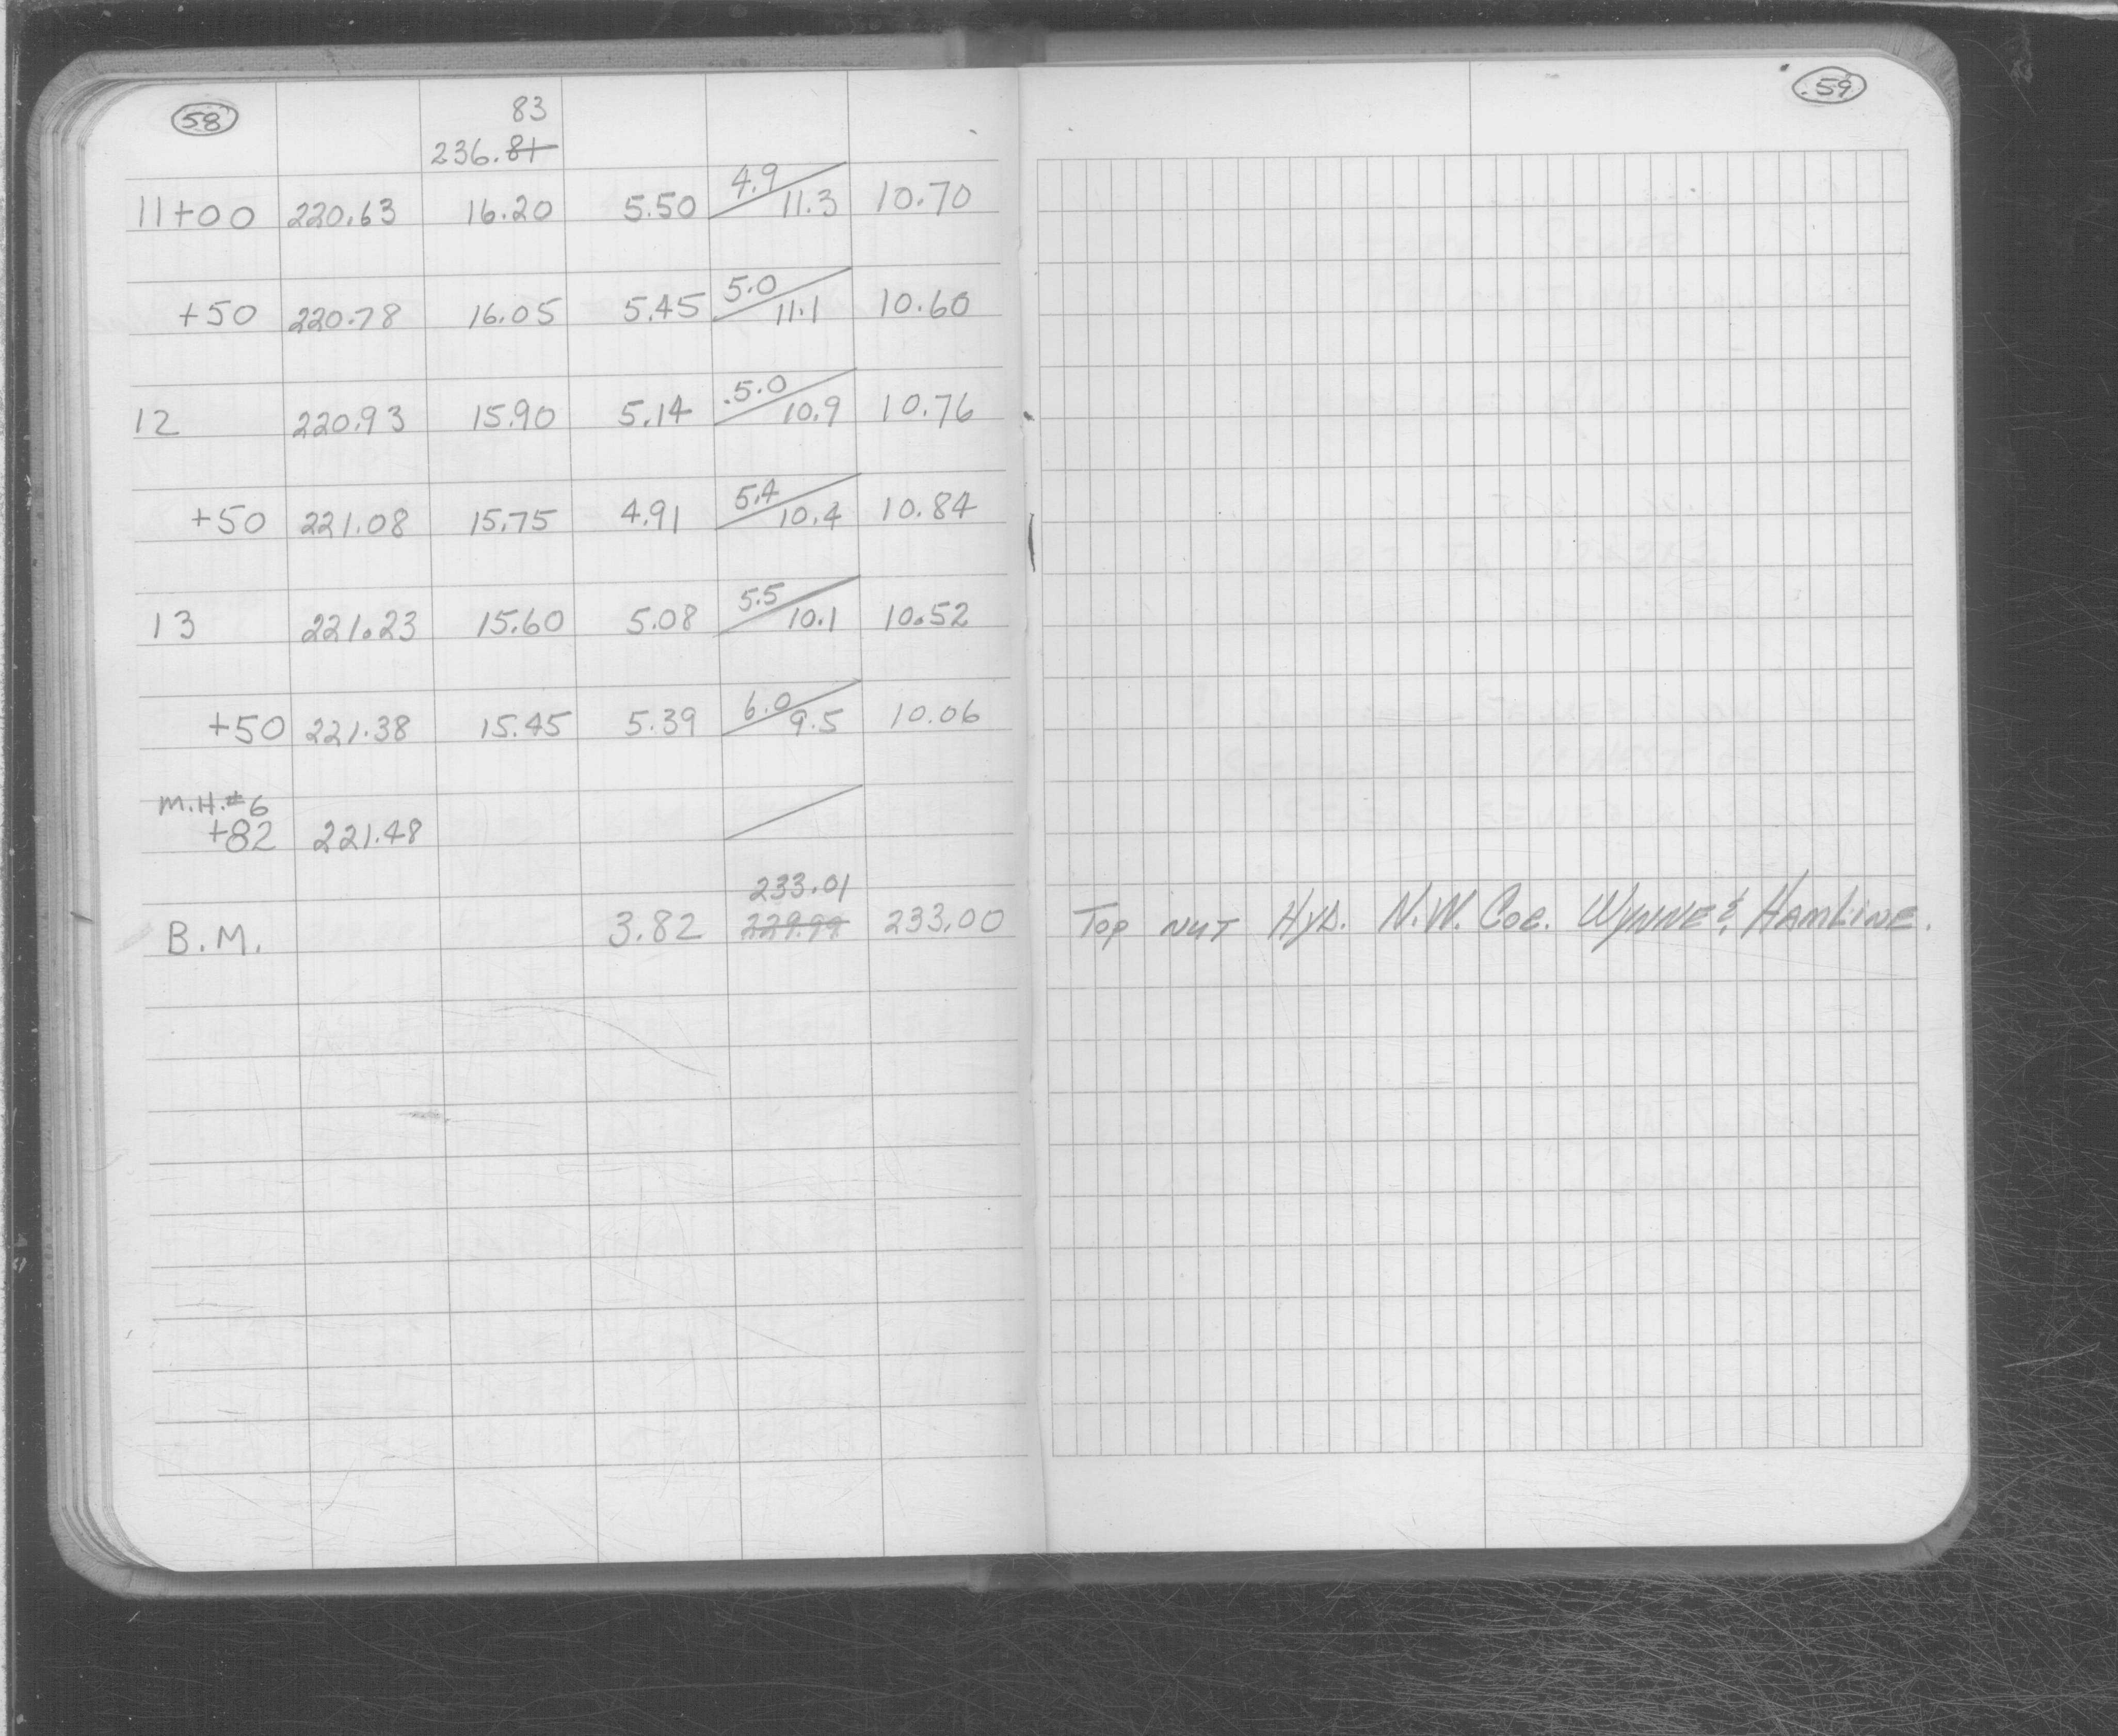 58
83
236.81
11+00 220.63 16.20 5.50 4.9/11.3 10.70
+50 220.78 16.05 5.45 5.0/11.1 10.60
12 220.93 15.90 5.14 5.0/10.9 10.76
+50 221.08 15.75 4.91 5.4/10.4 10.84
13 221.23 15.60 5.08 5.5/10.1 10.52
+50 221.38 15.45 5.39 6.0/9.5 10.06
M.H.#6
+82 221.48
233.01
B.M. 3.82 233.00
59
Top NUT HYD. N.W. COR. WYNNE & HAMLINE.